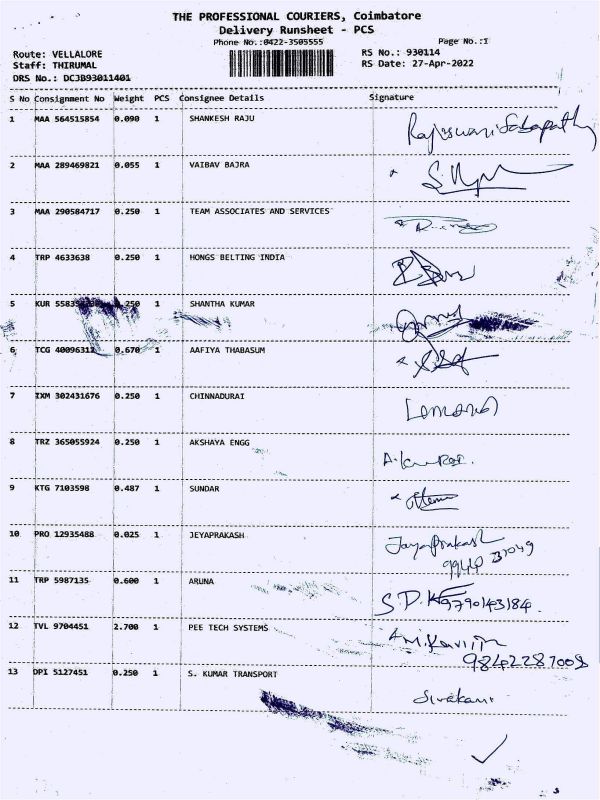 THE PROFESSIONAL COURIERS, Coimbatore
Delivery Runsheet - PCS
Phone No.:0422-3505555 Page No.:1
Route: VELLALORE RS No.: 930114
Staff: THIRUMAL RS Date: 27-Apr-2022
DRS No.: DCJB93011401
S No Consignment No Weight PCS Consignee Details Signature
1 MAA 564515854 0.090 1 SHANKESH RAJU
2 MAA 289469821 0.055 1 VAIBAV BAJRA
3 MAA 290584717 0.250 1 TEAM ASSOCIATES AND SERVICES
4 TRP 4633638 0.250 1 HONGS BELTING INDIA
5 KUR 1 SHANTHA KUMAR
6 TCG 0.670 1 AAFIYA THABASUM
7 IXM 302431676 0.250 1 CHINNADURAI
8 TRZ 365055924 0.250 1 AKSHAYA ENGG
9 KTG 7103598 0.487 1 SUNDAR
10 PRO 12935488 0.025 1 JEYAPRAKASH Jayaprakash
11 TRP 5987135 0.600 1 ARUNA S.D.
12 TVL 9704451 2.700 1 PEE TECH SYSTEMS
13 DPI 5127451 0.250 1 S. KUMAR TRANSPORT Sivakami